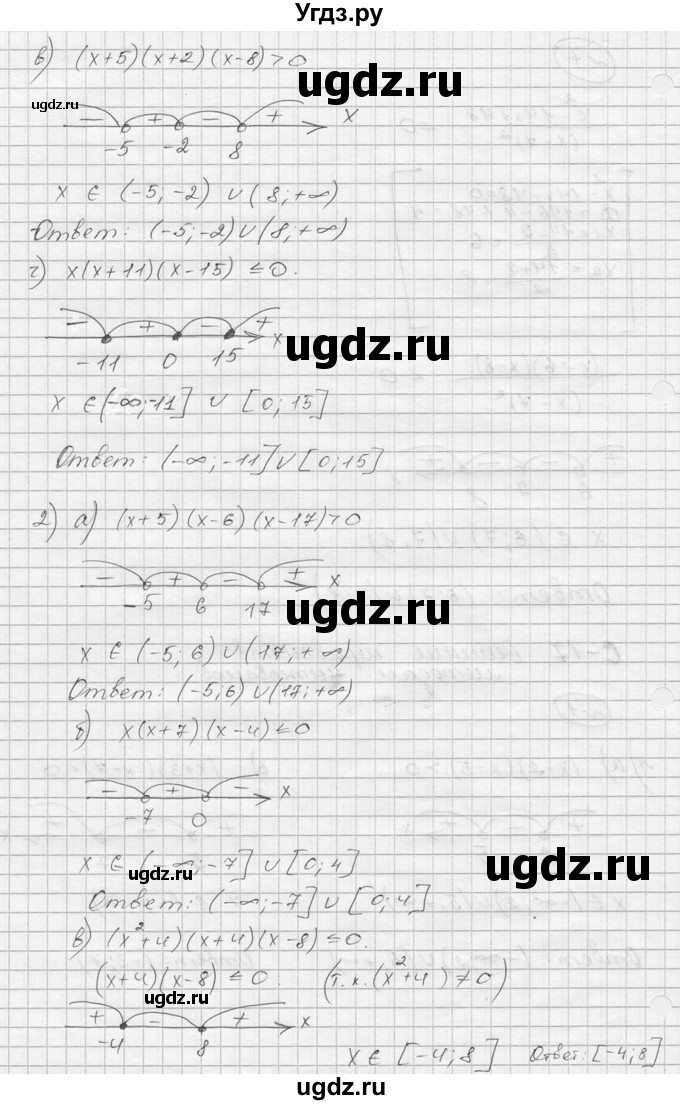 Угдз.ру
в) (x+5)(x+2)(x-8)>0
ugdz.ru
ugdz.ru
- + - + x
-5 -2 8
x ∈ (-5; -2) ∪ (8; +∞)
Ответ: (-5; -2) ∪ (8; +∞)
г) x(x+11)(x-15) ≤ 0.
- + - + x
-11 0 15
ugdz.ru
x ∈ (-∞; -11] ∪ [0; 15]
Ответ: (-∞; -11] ∪ [0; 15]
2) а) (x+5)(x-6)(x-17)>0
- + - + x
-5 6 17
ugdz.ru
x ∈ (-5; 6) ∪ (17; +∞)
Ответ: (-5; 6) ∪ (17; +∞)
б) x(x+7)(x-4) ≤ 0
- + - x
-7 0
x ∈ (-∞; -7] ∪ [0; 4]
ugdz.ru
ugdz.ru
Ответ: (-∞; -7] ∪ [0; 4]
в) (x²+4)(x+4)(x-8) ≤ 0.
(x+4)(x-8) ≤ 0. (т.к. (x²+4) ≠ 0)
ugdz.ru
+ - + x
-4 8
x ∈ [-4; 8] Ответ: [-4; 8]
ugdz.ru